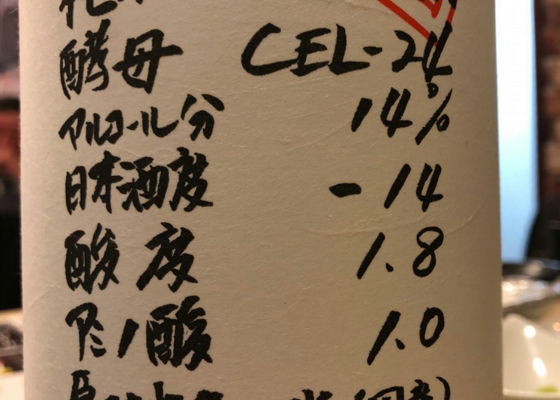 酵母 CEL-24
アルコール分 14%
日本酒度 -14
酸度 1.8
アミノ酸 1.0